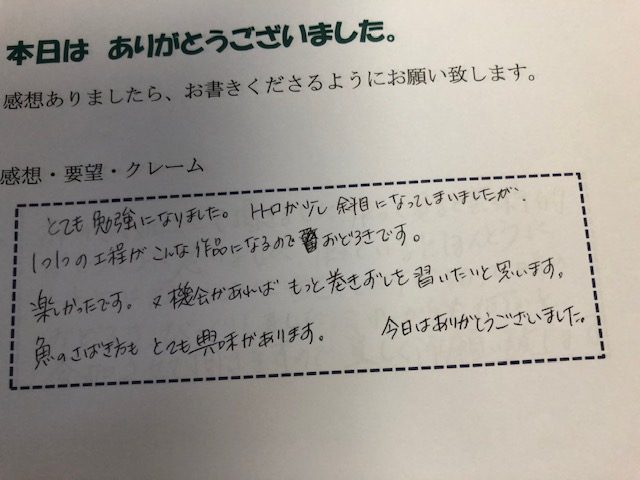 本日は ありがとうございました。
感想ありましたら、お書きくださるようにお願い致します。
感想・要望・クレーム
とても勉強になりました。トトロが少し斜目になってしまいましたが、
1つ1つの工程がこんな作品になるのでおどろきです。
楽しかったです。又機会があればもっと巻きずしを習いたいと思います。
魚のさばき方もとても興味があります。 今日はありがとうございました。